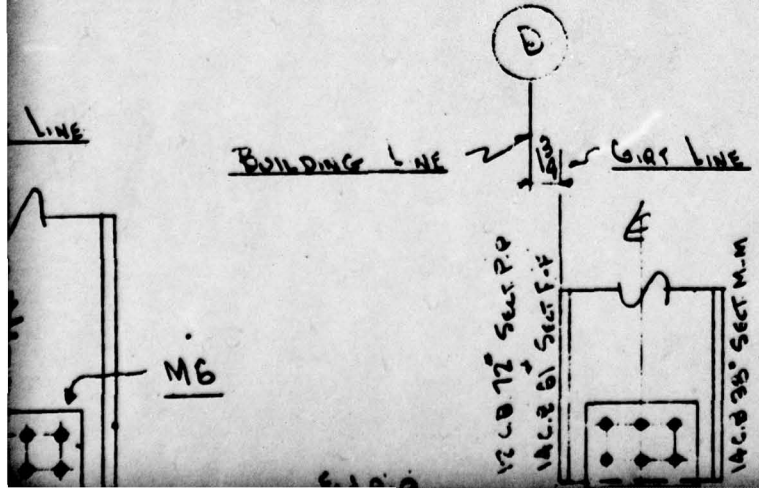 D
LINE
BUILDING LINE
1 3/4
GIRT LINE
M6
12 C.B. 72# SECT. P.P
14 C.B 61# SECT F-F
14 C.B 38# SECT M-M